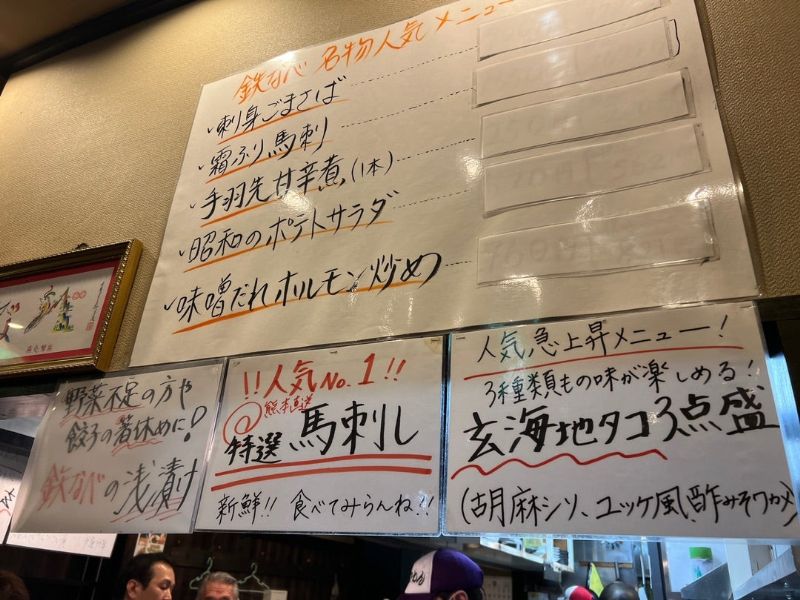 鉄なべ 名物人気メニュー
刺身ごまさば
霜ふり馬刺
手羽先甘辛煮(1本)
昭和のポテトサラダ
味噌だれホルモン炒め
野菜不足の方や
餃子の箸休めに!
鉄なべの浅漬け
!!人気No.1!!
熊本直送
特選 馬刺し
新鮮!! 食べてみらんね!!
人気急上昇メニュー!
3種類もの味が楽しめる!
玄海地タコ3点盛
(胡麻シソ、ユッケ風、酢みそワカメ)